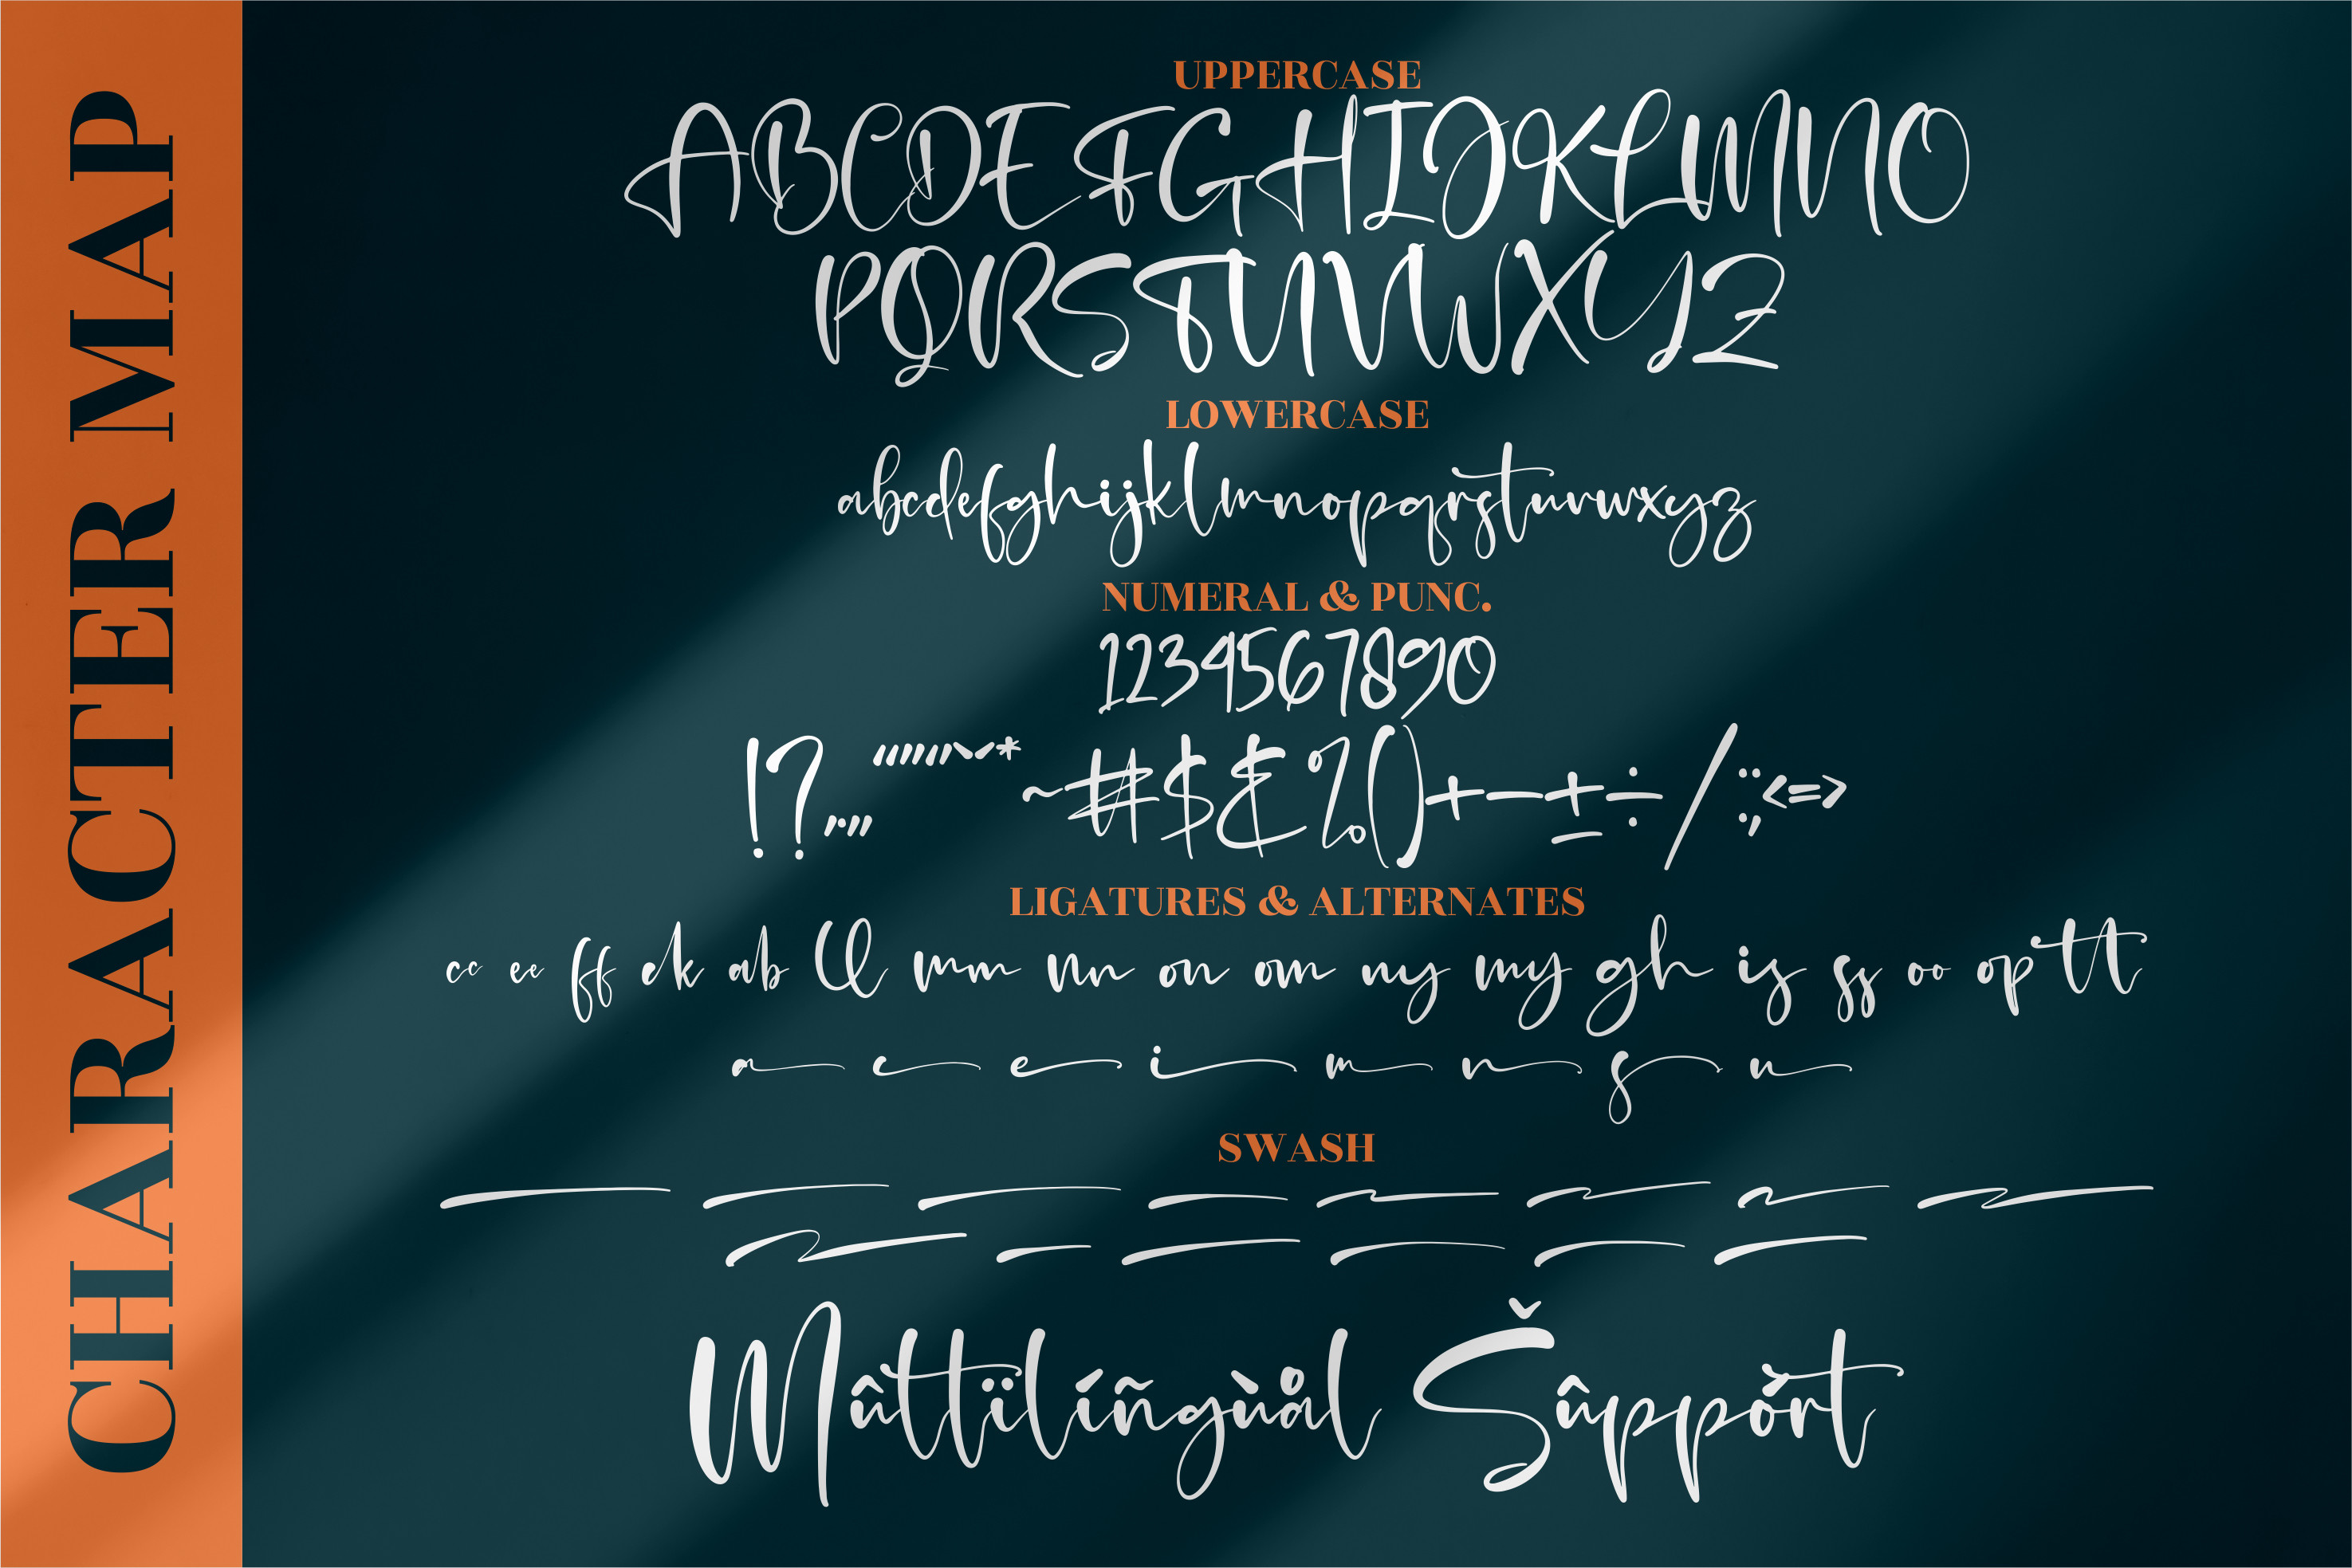 CHARACTER MAP
UPPERCASE
ABCDEFGHIJKLMNO
PQRSTUVWXYZ
LOWERCASE
abcdefghijklmnopqrstuvwxyz
NUMERAL & PUNC.
1234567890
!?.,., ''''''`´* ~#$&%()+−±÷/:;<=>
LIGATURES & ALTERNATES
cc ee ff ck ab ll mm nn on om ny my gh is ss oo op tt
a c e i m n s u
SWASH
Mâttïlíñgùål Šûppořt